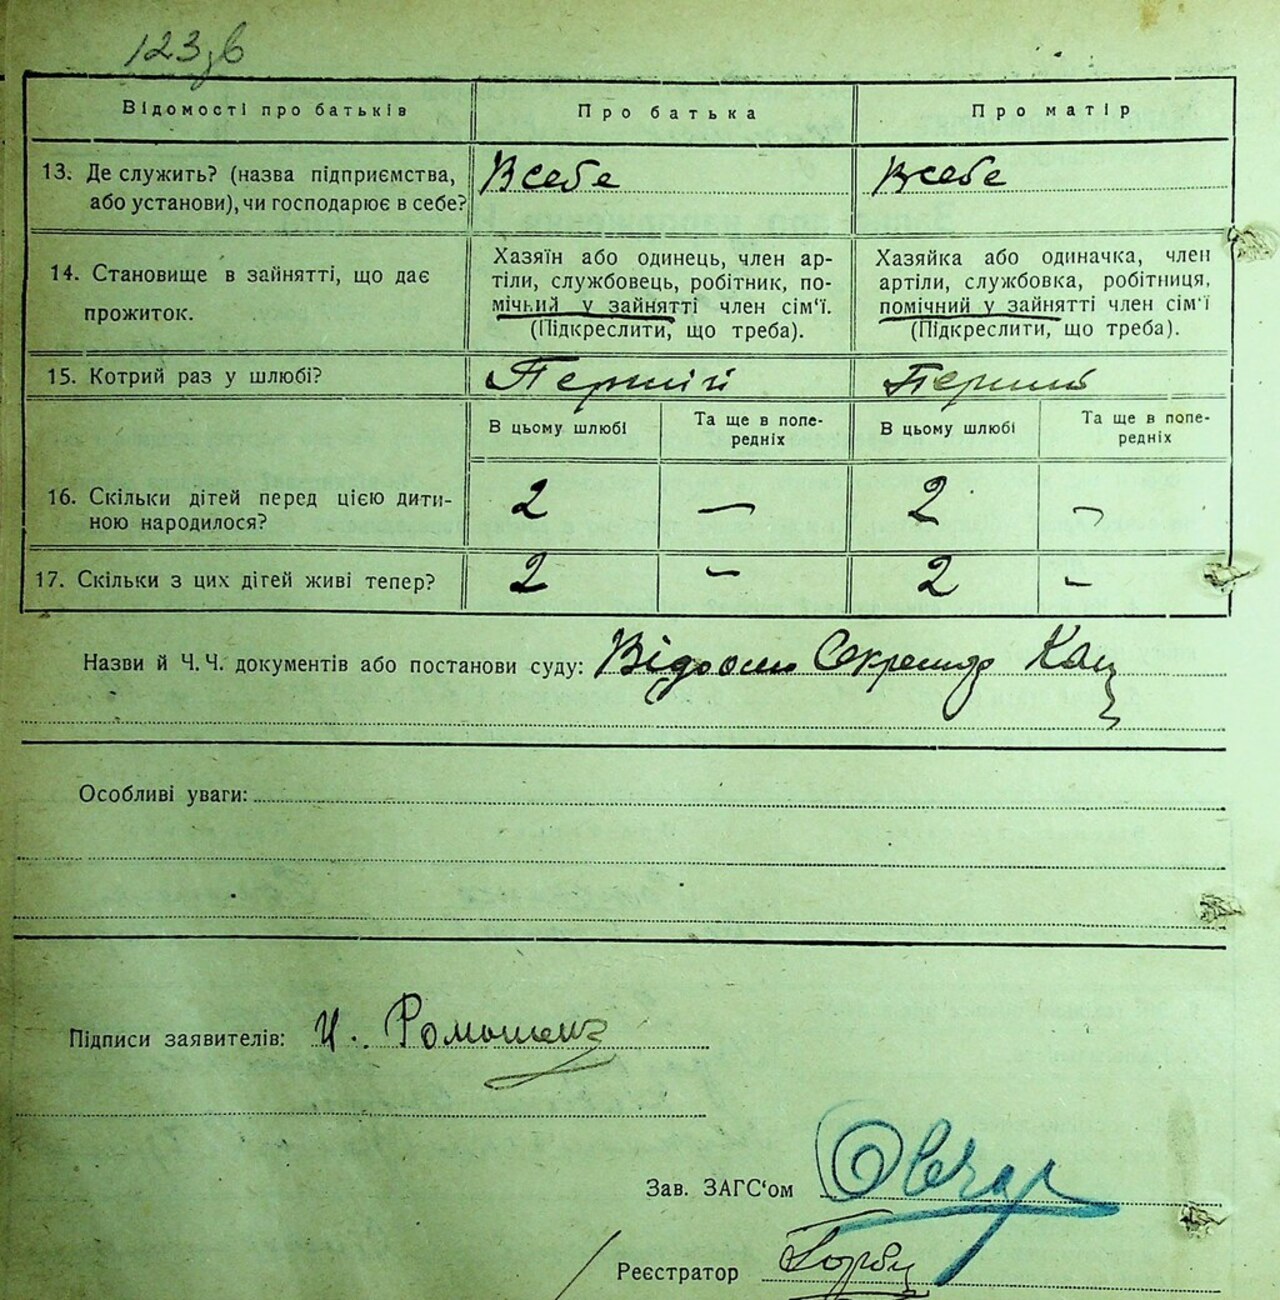 123зв
Відомості про батьків
Про батька
Про матір
13. Де служить? (назва підприємства,
або установи), чи господарює в себе?
В себе
В себе
14. Становище в зайнятті, що дає
прожиток.
Хазяїн або одинець, член ар-
тіли, службовець, робітник, по-
мічний у зайнятті член сім‘ї.
(Підкреслити, що треба).
Хазяйка або одиначка, член
артіли, службовка, робітниця,
помічний у зайнятті член сім‘ї
(Підкреслити, що треба).
15. Котрий раз у шлюбі?
Перший
Перший
В цьому шлюбі
Та ще в попе-
редніх
В цьому шлюбі
Та ще в попе-
редніх
16. Скільки дітей перед цією дити-
ною народилося?
2 — 2 —
17. Скільки з цих дітей живі тепер?
2 — 2 —
Назви й Ч.Ч. документів або постанови суду: Кац
Особливі уваги:
Підписи заявителів:
Зав. ЗАГС‘ом Овчар
Реєстратор